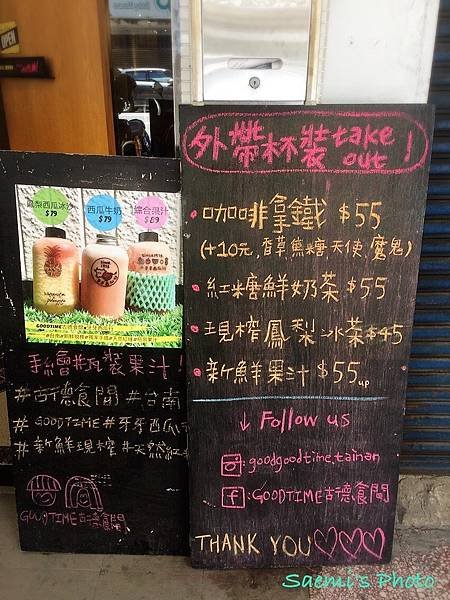 OPEN
鳳梨西瓜冰沙
$79
西瓜牛奶
$79
綜合果汁
$89
手繪瓶裝果汁!
#古德食間 #台南
#GOODTIME
#新鮮現榨 #天然
GOODTIME古德食間
外帶杯裝take out!
·咖啡拿鐵 $55
(+10元,香草焦糖天使.魔鬼)
·紅糖鮮奶茶 $55
·現榨鳳梨冰茶$45
·新鮮果汁 $55up
↓ Follow us
:goodgoodtime.tainan
f:GOODTIME古德食間
THANK YOU♡♡♡
Saemi's Photo